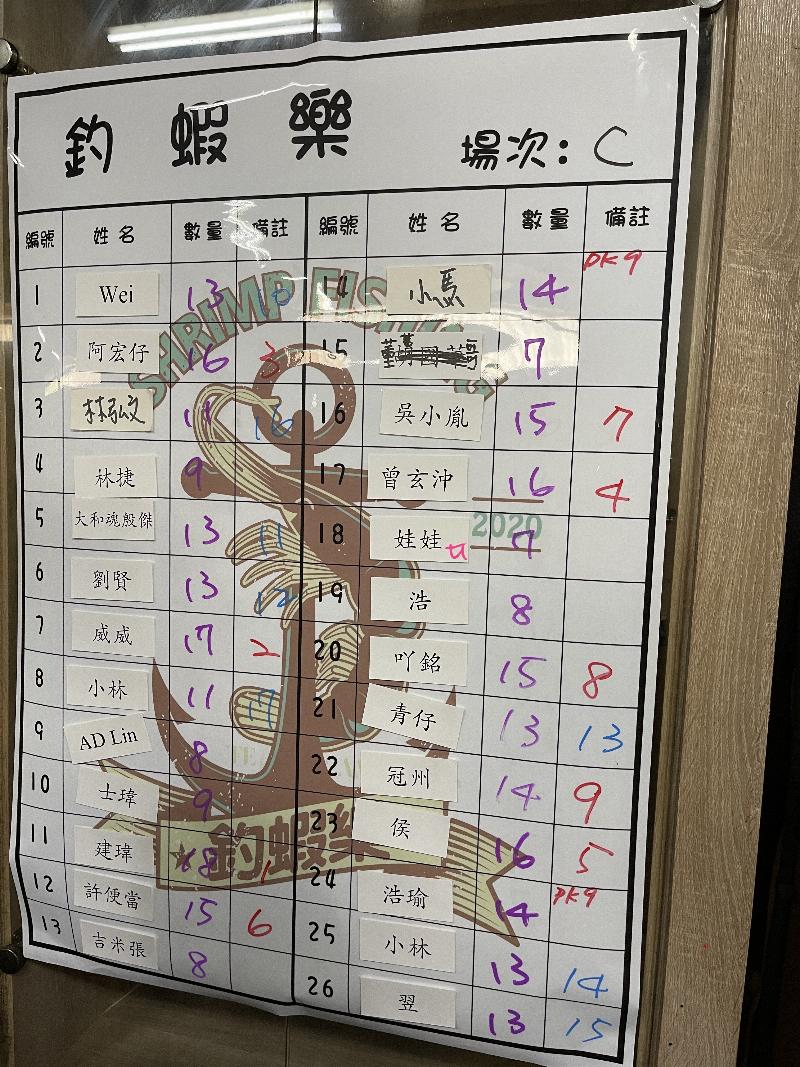 釣蝦樂 場次: C
編號 姓名 數量 備註
1 Wei 13 10
2 阿宏仔 16 3
3 林弘文 11 16
4 林捷 9
5 大和魂殷傑 13 11
6 劉賢 13 12
7 威威 17 2
8 小林 11 17
9 AD Lin 8
10 士瑋 9
11 建瑋 18 1
12 許便當 15 6
13 吉米張 8
編號 姓名 數量 備註
14 小馬 14 PK9
15 7
16 吳小胤 15 7
17 曾玄沖 16 4
18 娃娃 7
19 浩 8
20 吖銘 15 8
21 青仔 13 13
22 冠州 14 9
23 侯 16 5
24 浩瑜 14 PK9
25 小林 13 14
26 翌 13 15
SHRIMP FISHING
2020
釣蝦樂